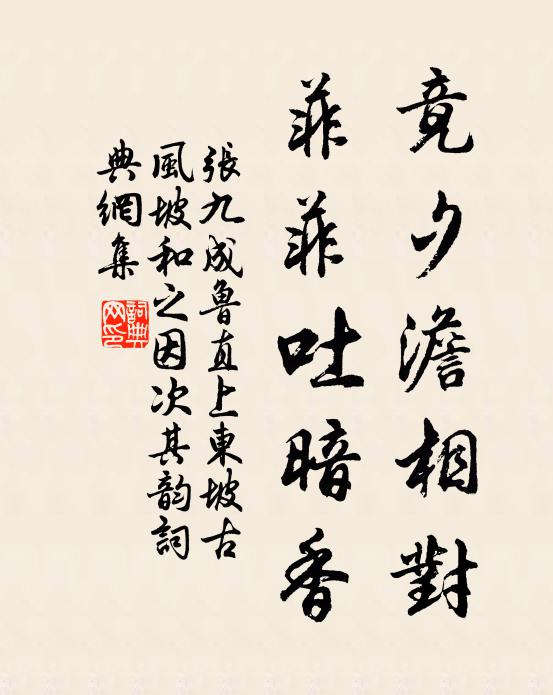 竟夕澹相對
菲菲吐暗香
張九成魯直上東坡古
風坡和之因次其韵詞
典網集
詞典
网印